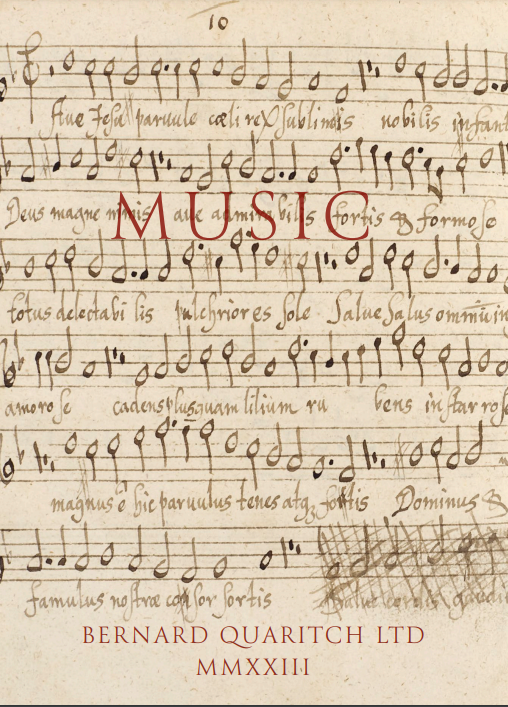 10
Aue Jesu paruule cœli rex sublimis nobilis infant
Deus magne nimis aue admirabilis fortis & formose
MUSIC
totus delectabilis pulchrior es sole Salue salus omniū in
amorose cadens plusquam lilium rubens instar rose
magnus ê hic paruulus tenes atq; fortis Dominus &
famulus nostræ consor sortis Salue cordis gaudiu
BERNARD QUARITCH LTD
MMXXIII